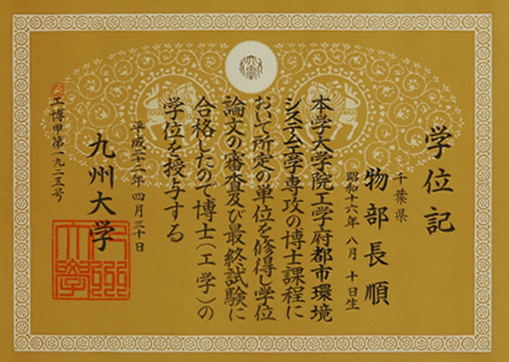 学位記
千葉県
物部長順
昭和十六年八月十日生
本学大学院工学府都市環境
システム工学専攻の博士課程に
おいて所定の単位を修得し学位
論文の審査及び最終試験に
合格したので博士(工学)の
学位を授与する
平成二十一年四月三十日
九州大学
工博甲第一九二五号